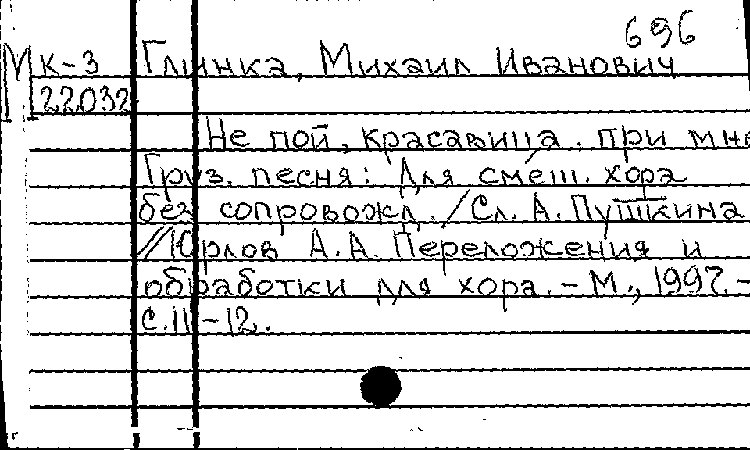 696
М К-3 Глинка, Михаил Иванович
22032
Не пой, красавица, при мне
Груз. песня: Для смеш. хора
без сопровожд. / Сл. А. Пушкина
// Юрлов А. А. Переложения и
обработки для хора. - М., 1997. -
С. 11-12.